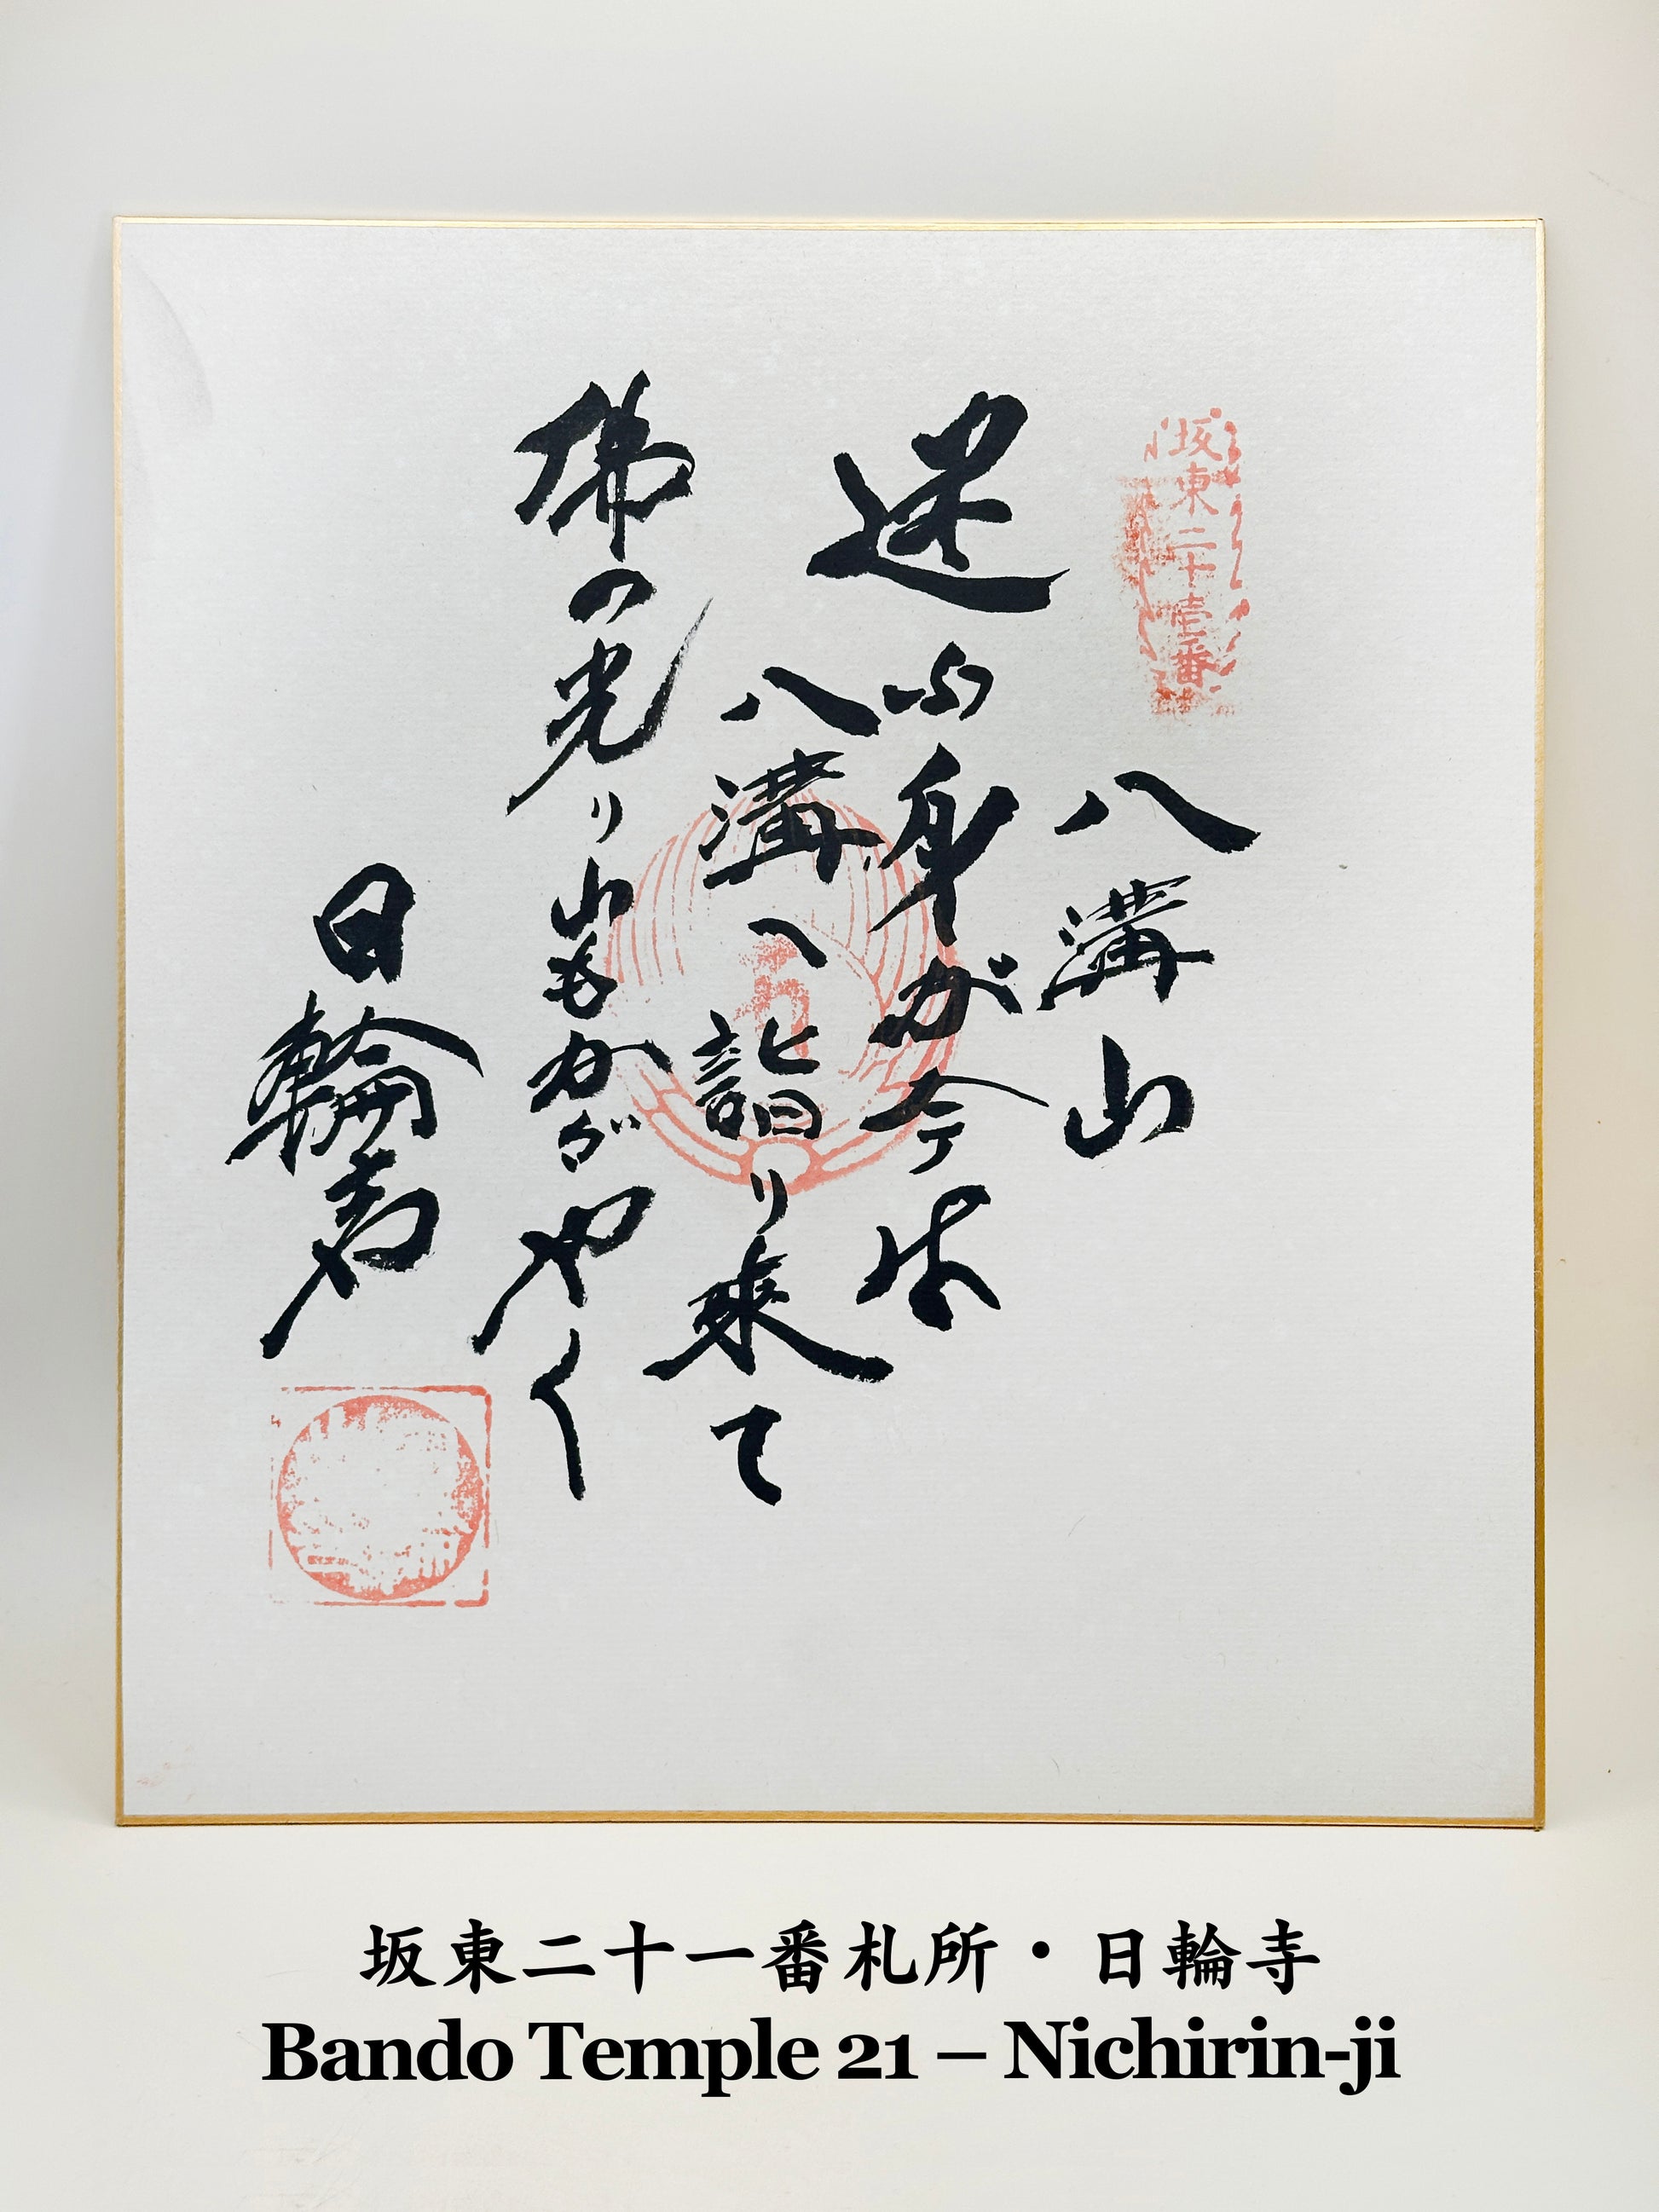 坂東二十壱番
八溝山
迷ふ身が今は
八溝へ詣り来て
佛の光り山もかがやく
日輪寺
坂東二十一番札所・日輪寺
Bando Temple 21 – Nichirin-ji